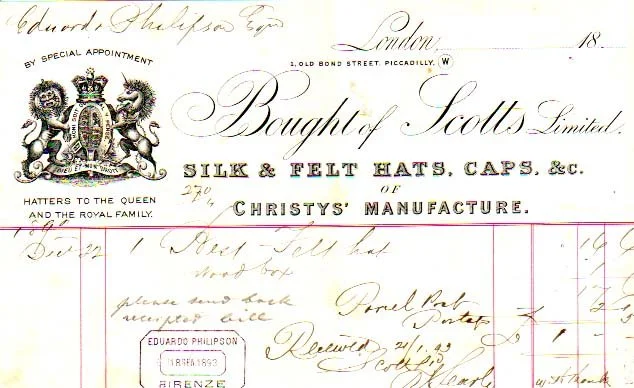 Eduardo Philipson Esqre
London, 18
BY SPECIAL APPOINTMENT
1, OLD BOND STREET, PICCADILLY, W
HONI SOIT
DIEU ET MON DROIT
Bought of Scotts Limited.
SILK & FELT HATS, CAPS, &c.
OF
CHRISTYS' MANUFACTURE.
HATTERS TO THE QUEEN
AND THE ROYAL FAMILY.
Decr 22 1 Best Felt hat 16 6
wood box 1
17 6
please send back
receipted bill
Parcel Post
Postage
Received 21/1.93
EDUARDO PHILIPSON
1893
FIRENZE
Scotts Ld
W. H. Thanks